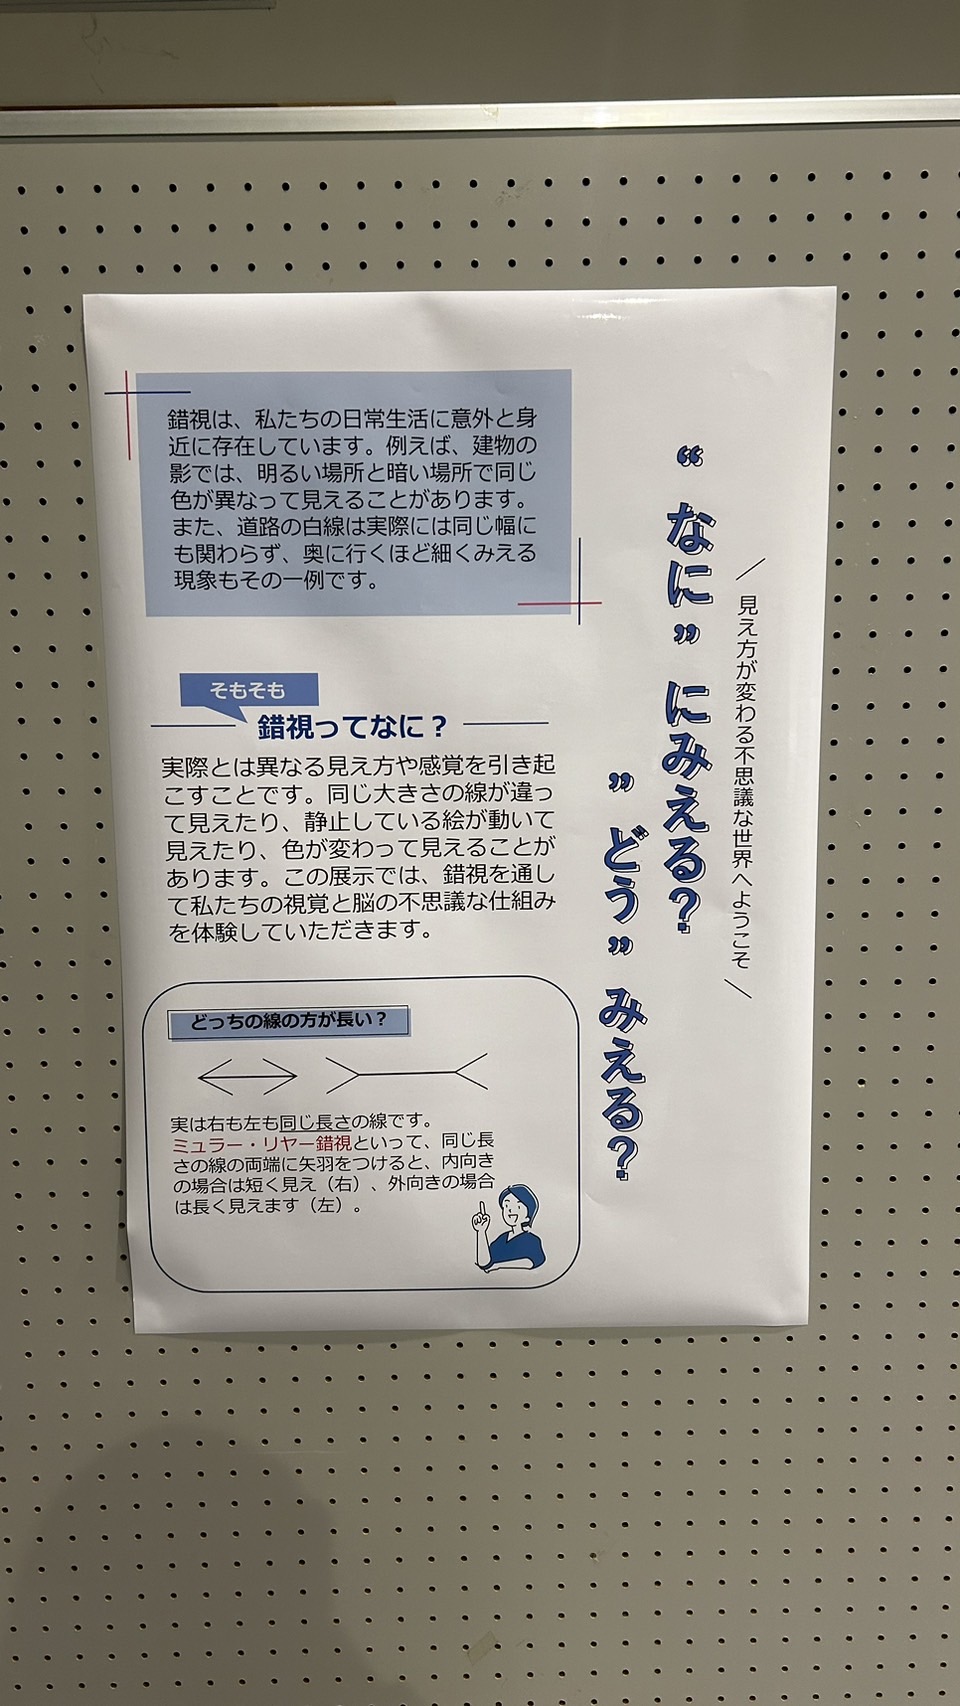 見え方が変わる不思議な世界へようこそ
“なに”にみえる？
”どう”みえる？
錯視は、私たちの日常生活に意外と身
近に存在しています。例えば、建物の
影では、明るい場所と暗い場所で同じ
色が異なって見えることがあります。
また、道路の白線は実際には同じ幅に
も関わらず、奥に行くほど細くみえる
現象もその一例です。
そもそも
錯視ってなに？
実際とは異なる見え方や感覚を引き起
こすことです。同じ大きさの線が違っ
て見えたり、静止している絵が動いて
見えたり、色が変わって見えることが
あります。この展示では、錯視を通し
て私たちの視覚と脳の不思議な仕組み
を体験していただきます。
どっちの線の方が長い？
実は右も左も同じ長さの線です。
ミュラー・リヤー錯視といって、同じ長
さの線の両端に矢羽をつけると、内向き
の場合は短く見え（右）、外向きの場合
は長く見えます（左）。